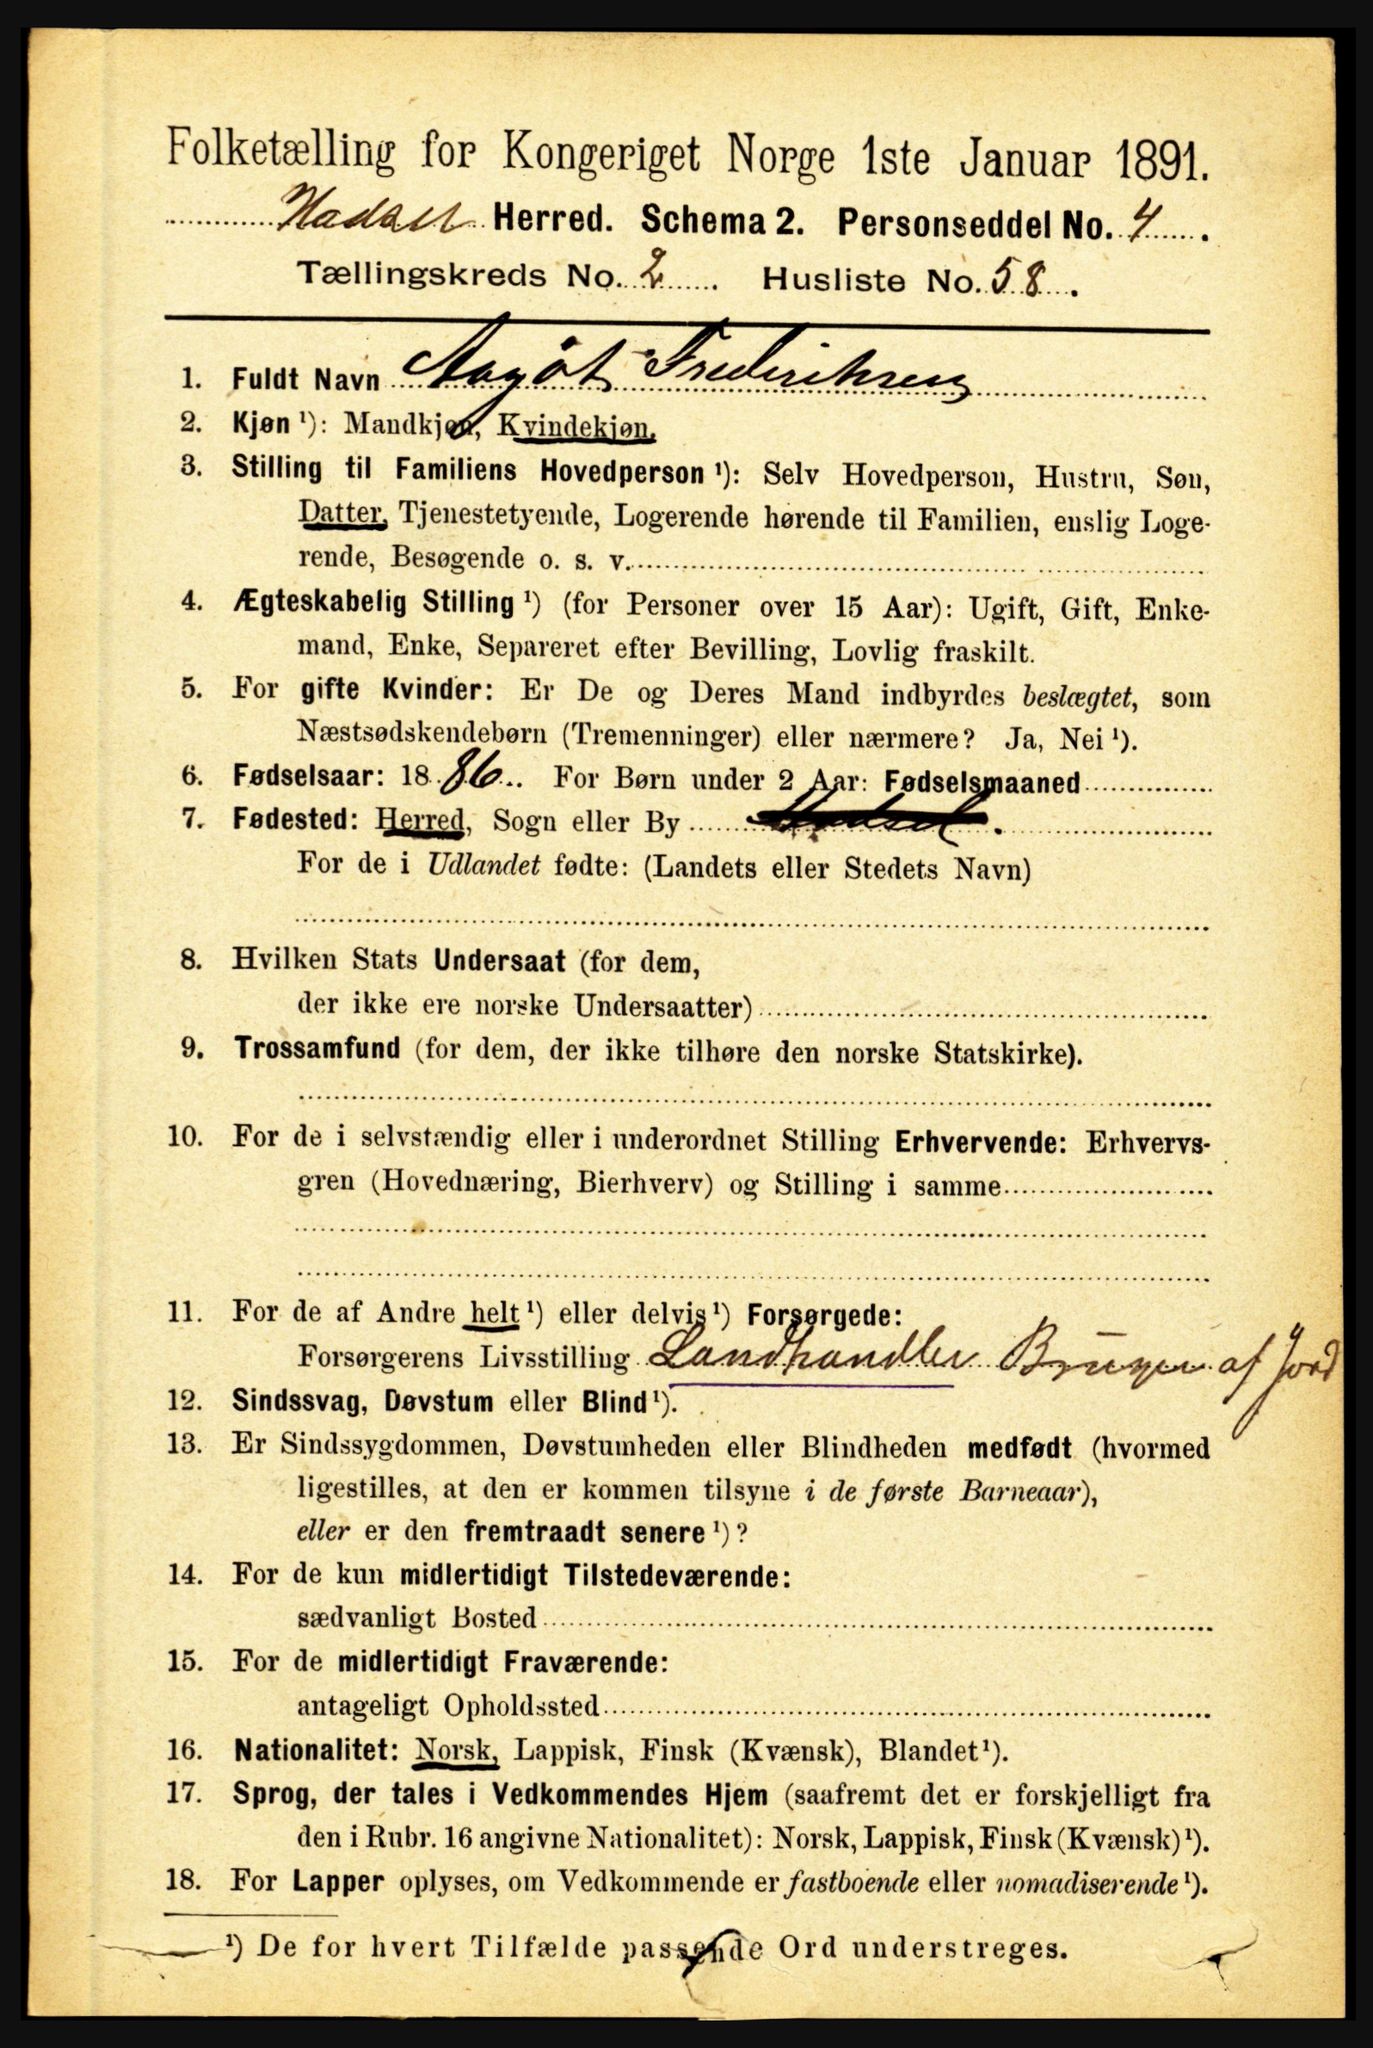 Folketælling for Kongeriget Norge 1ste Januar 1891.
Hadsel Herred. Schema 2. Personseddel No. 4.
Tællingskreds No. 2. Husliste No. 58.
1. Fuldt Navn Aagöt Frederiksen
2. Kjøn ¹): Mandkjøn, Kvindekjøn.
3. Stilling til Familiens Hovedperson ¹): Selv Hovedperson, Hustru, Søn,
Datter, Tjenestetyende, Logerende hørende til Familien, enslig Loge-
rende, Besøgende o. s. v.
4. Ægteskabelig Stilling ¹) (for Personer over 15 Aar): Ugift, Gift, Enke-
mand, Enke, Separeret efter Bevilling, Lovlig fraskilt.
5. For gifte Kvinder: Er De og Deres Mand indbyrdes beslægtet, som
Næstsødskendebørn (Tremenninger) eller nærmere? Ja, Nei ¹).
6. Fødselsaar: 1886. For Børn under 2 Aar: Fødselsmaaned
7. Fødested: Herred, Sogn eller By Hadsel.
For de i Udlandet fødte: (Landets eller Stedets Navn)
8. Hvilken Stats Undersaat (for dem,
der ikke ere norske Undersaatter)
9. Trossamfund (for dem, der ikke tilhøre den norske Statskirke).
10. For de i selvstændig eller i underordnet Stilling Erhvervende: Erhvervs-
gren (Hovednæring, Bierhverv) og Stilling i samme
11. For de af Andre helt ¹) eller delvis ¹) Forsørgede:
Forsørgerens Livsstilling Landhandler Bruger af Jord
12. Sindssvag, Døvstum eller Blind ¹).
13. Er Sindssygdommen, Døvstumheden eller Blindheden medfødt (hvormed
ligestilles, at den er kommen tilsyne i de første Barneaar),
eller er den fremtraadt senere ¹)?
14. For de kun midlertidigt Tilstedeværende:
sædvanligt Bosted
15. For de midlertidigt Fraværende:
antageligt Opholdssted
16. Nationalitet: Norsk, Lappisk, Finsk (Kvænsk), Blandet ¹).
17. Sprog, der tales i Vedkommendes Hjem (saafremt det er forskjelligt fra
den i Rubr. 16 angivne Nationalitet): Norsk, Lappisk, Finsk (Kvænsk) ¹).
18. For Lapper oplyses, om Vedkommende er fastboende eller nomadiserende ¹).
¹) De for hvert Tilfælde passende Ord understreges.